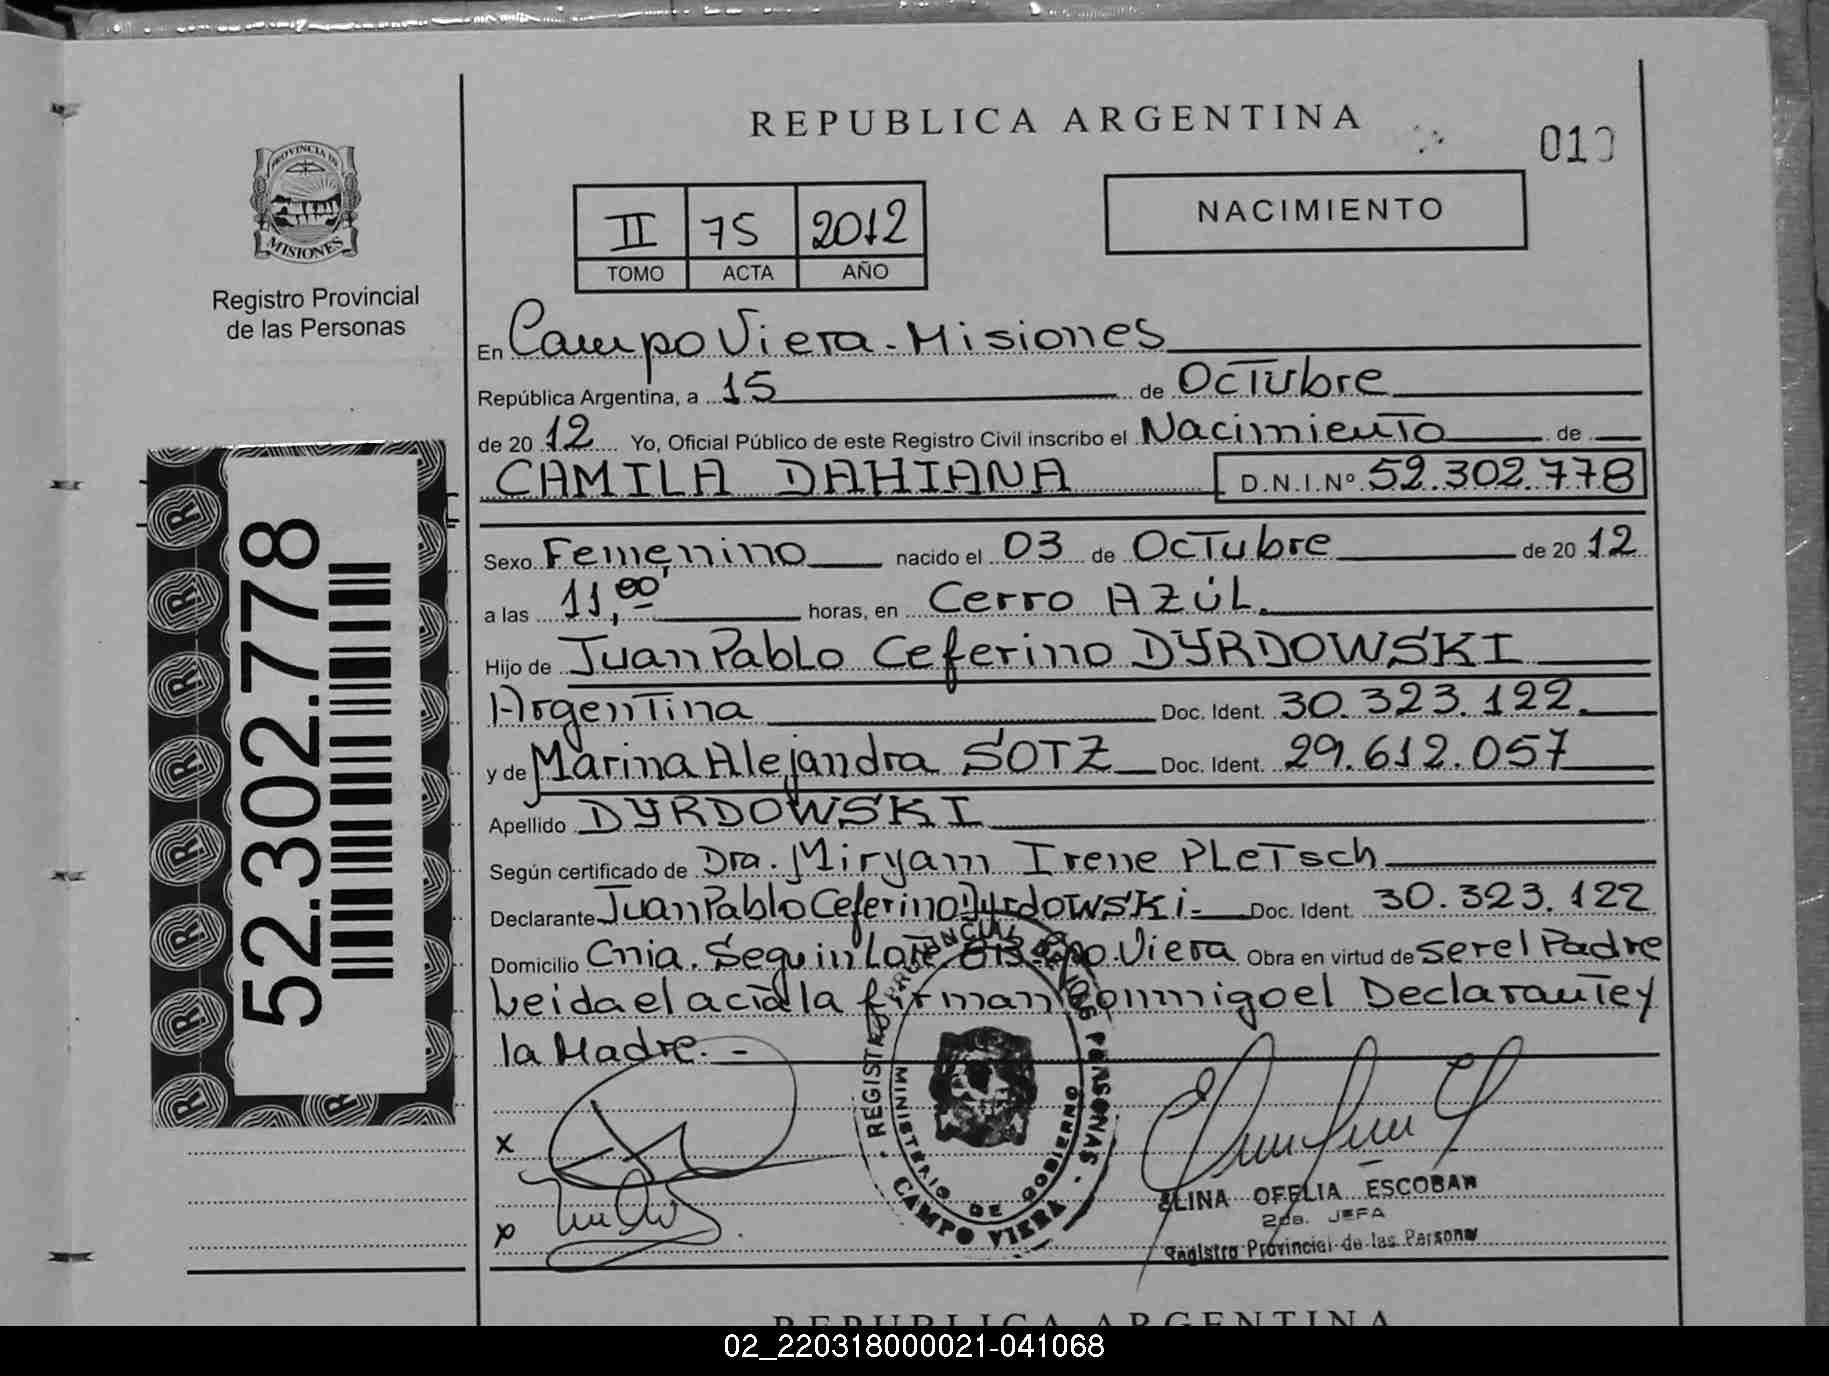 REPUBLICA ARGENTINA
PROVINCIA DE
MISIONES
Registro Provincial
de las Personas
II 75 2012
TOMO ACTA AÑO
NACIMIENTO
En Campo Viera - Misiones
República Argentina, a 15 de Octubre
de 20 12 Yo, Oficial Público de este Registro Civil inscribo el Nacimiento de
CAMILA DAHIANA D.N.I.Nº 52.302.778
52.302.778
Sexo Femenino nacido el 03 de Octubre de 20 12
a las 11,00' horas, en Cerro AZÚL.
Hijo de Juan Pablo Ceferino DYRDOWSKI
Argentina Doc. Ident. 30.323.122.
y de Marina Alejandra SOTZ Doc. Ident. 29.612.057
Apellido DYRDOWSKI
Según certificado de Dra. Miryam Irene PLETsch
Declarante Juan Pablo Ceferino Dyrdowski- Doc. Ident. 30.323.122
Domicilio Cnia. Seguin Lote Viera Obra en virtud de ser el Padre
Leida el acta la firman conmigo el Declarante y
la Madre. -
x
x
REGISTRO PROVINCIAL DE LAS PERSONAS
MINISTERIO DE GOBIERNO
CAMPO VIERA
ELINA OFELIA ESCOBAR
2da. JEFA
Registro Provincial de las Personas
REPUBLICA ARGENTINA
02_220318000021-041068